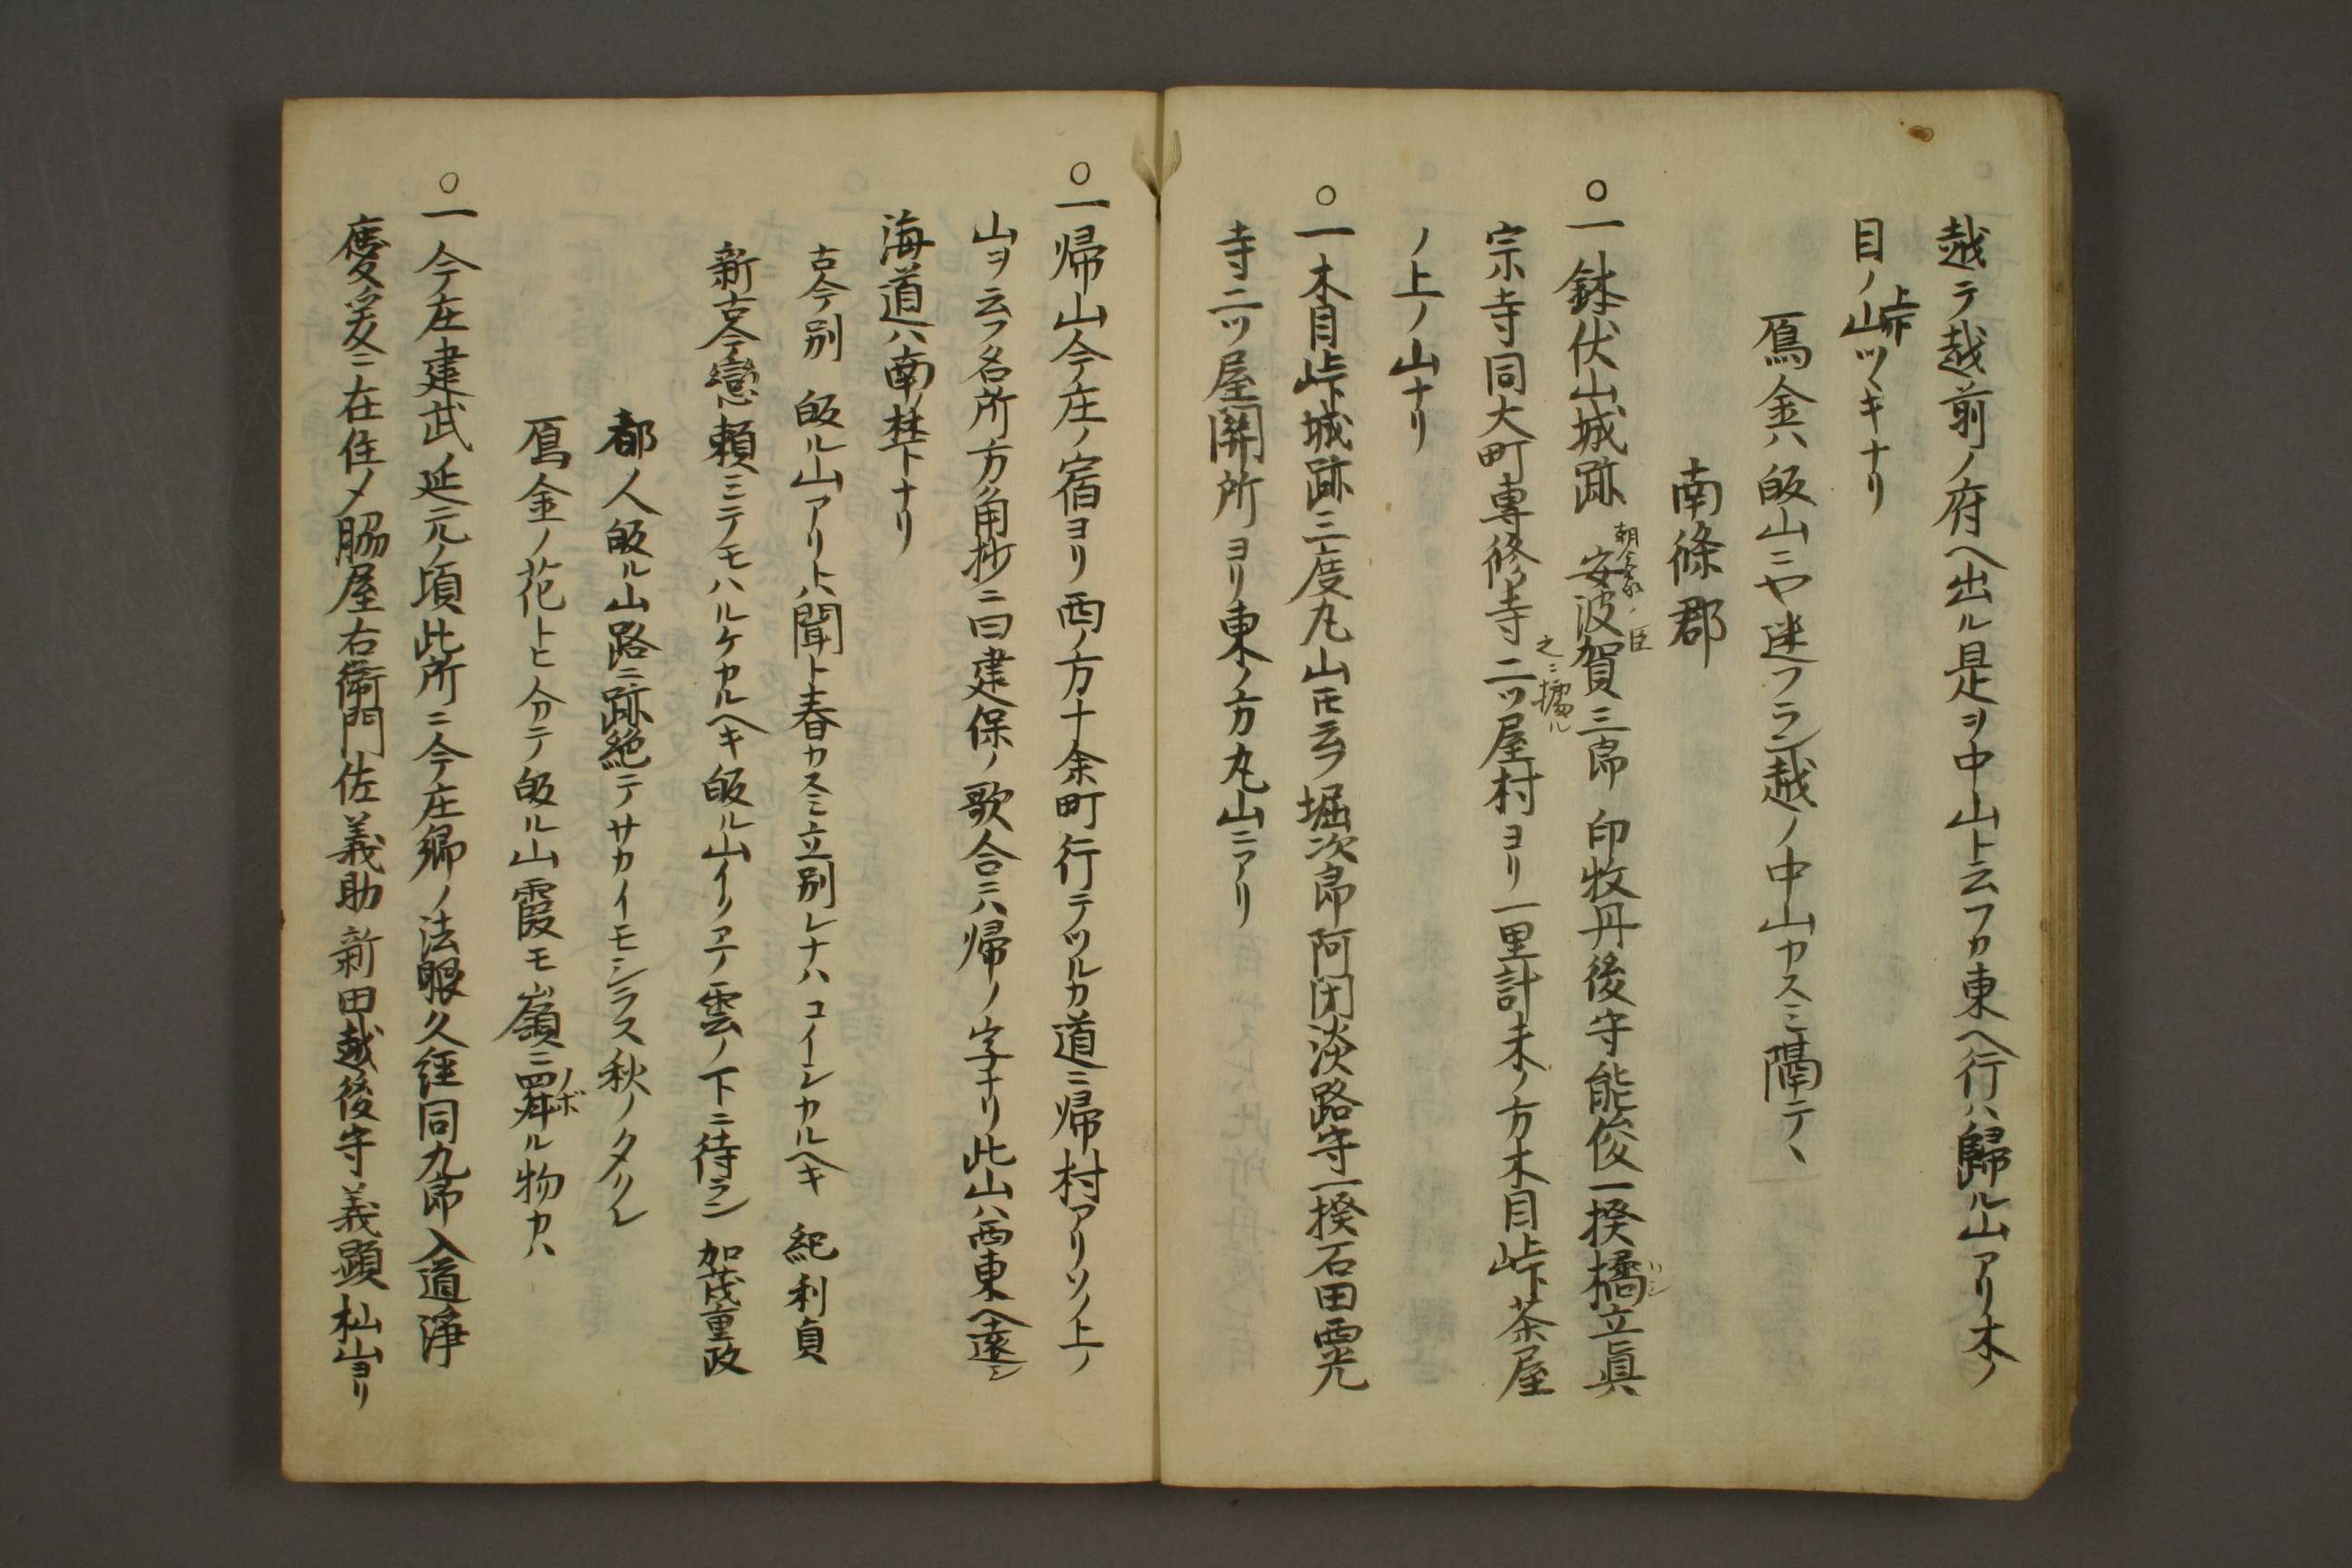 越テ越前ノ府ヘ出ル是ヲ中山ト云フカ東ヘ行ハ歸ル山アリ木ノ
目ノ山峠ツヽキナリ
鴈金ハ皈山ニヤ迷フラン越ノ中山カスミ隔テヽ
南條郡
○一鉢伏山城跡 朝倉家ノ臣 安波賀三郎 印牧丹後守能俊一揆橋立眞
宗寺同大町専修寺 之ニ據ル 二ツ屋村ヨリ一里計未ノ方木目峠茶屋
ノ上ノ山ナリ
○一木目峠城跡三度丸山トモ云フ堀次郎阿閉淡路守一揆石田西光
寺二ツ屋關所ヨリ東ノ方丸山ニアリ
○一帰山今ノ庄ノ宿ヨリ西ノ方十余町行テツルカ道ニ帰村アリソノ上ノ
山ヲ云フ名所方角抄ニ曰建保ノ歌合ニハ帰ノ字ナリ此山ハ西東ヘ遠シ
海道ハ南ノ禁下ナリ
古今別 皈ル山アリトハ聞ト春カスミ立別レナハコイシカルヘキ 紀利貞
新古今戀 頼ミテモハルケカルヘキ皈ル山イクヘノ雲ノ下ニ待ラン 加茂重政
都人皈ル山路ニ跡絶テサカイモシラス秋ノタクレ
鴈金ノ花トヒ分テ皈ル山霞モ嶺ニノボル物カハ
○一今庄建武延元ノ頃此所ニ今庄郷ノ法眼久経同九郎入道浄
慶爰ニ在住〆脇屋右衛門佐義助新田越後守義顕杣山ヨリ